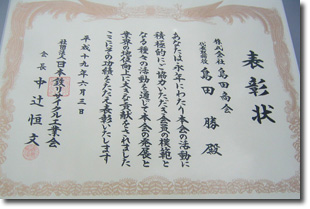 表彰状
株式会社 島田商会
代表取締役 島田 勝 殿
あなたは永年にわたり本会の活動に
積極的にご協力いただき会員の模範と
なる種々の活動を通して本会の発展と
業界の地位向上に大きな貢献をされました
ここにその功績をたたえ表彰いたします
平成十九年六月三日
社団法人 日本鉄リサイクル工業会
会長 中辻恒文